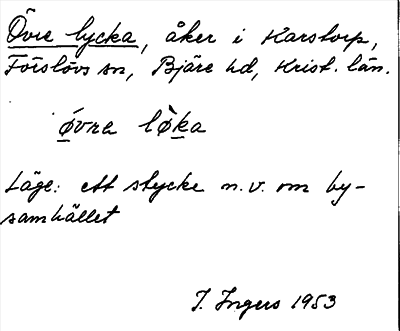 Övre lycka, åker i Karstorp,
Förslövs sn, Bjäre hd, Krist. län.
ǿvra lø̀ka
Läge: ett stycke n.v. om by-
samhället
I. Ingers 1953